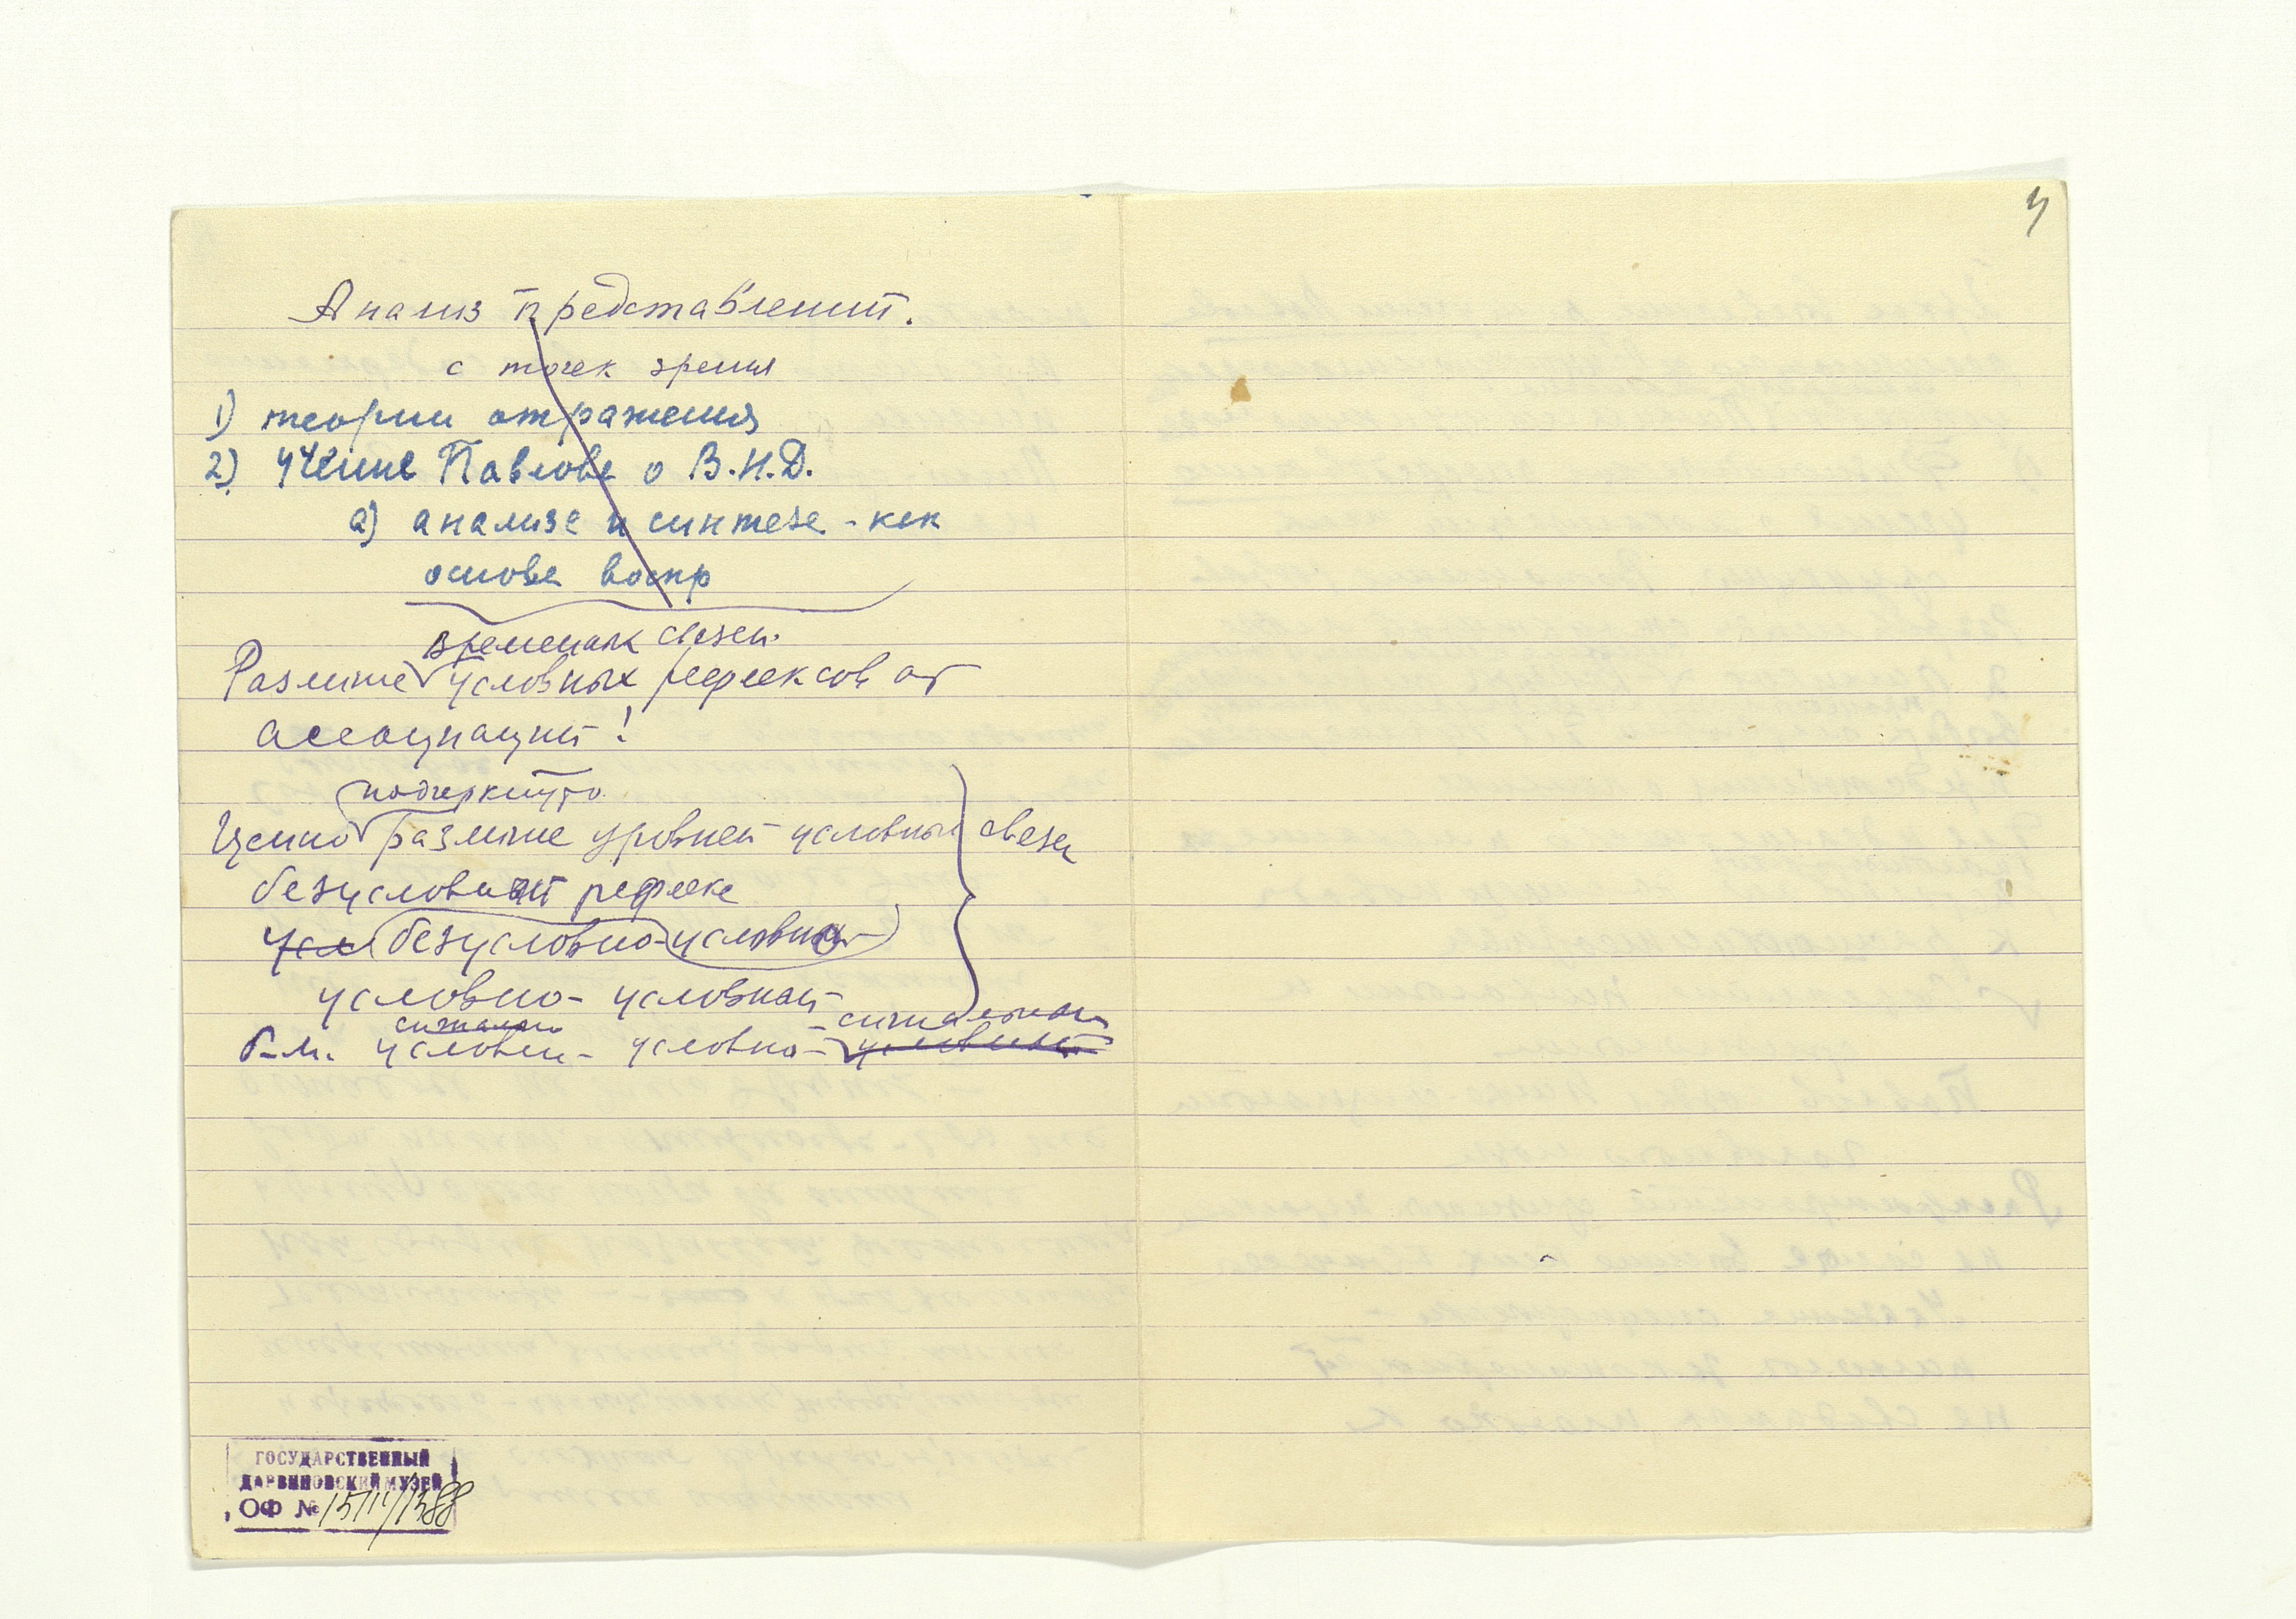 4
Анализ представлений.
с точек зрения
1) теории отражения
2) учение Павлова о В.Н.Д.
а) анализе и синтезе - как
основе воспр
временных связей
Различие условных рефлексов от
ассоциаций!
подчеркнуто
Ценно различие уровней условных связей
безусловный рефлекс
усл безусловно-условный
условно-условной
сигнально - сигнальной
б.м. условно- условно- условной
ГОСУДАРСТВЕННЫЙ
ДАРВИНОВСКИЙ МУЗЕЙ
ОФ №